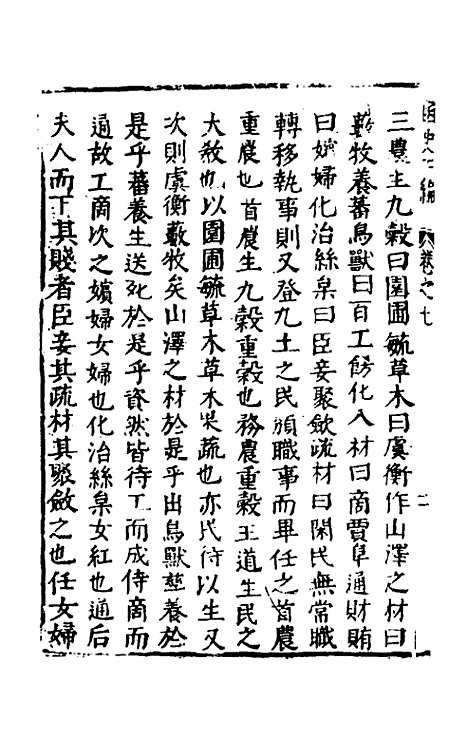 三農生九穀曰園圃毓草木曰虞衡作山澤之材曰
藪牧養蕃鳥獸曰百工飭化八材曰商賈阜通財賄
曰嬪婦化治絲枲曰臣妾聚斂疏材曰閑民無常職
轉移執事則又登九土之民頒職事而畢任之首農
重農也首農生九穀重穀也務農重穀王道生民之
大教也以園圃毓草木草木果蔬也亦民待以生又
次則虞衡藪牧矣山澤之材於是乎出鳥獸慈養於
是乎蕃養生送死於是乎資然皆待工而成待商而
通故工商次之嬪婦女婦也化治絲枲女紅也通后
夫人而下其賤者臣妾其疏材其聚斂之也任女婦
卷之七
二